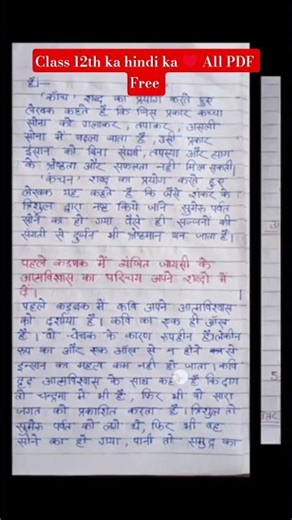 Class 12th ka hindi ka ❤️ All PDF
Free
है।—
'काँच' शब्द का प्रयोग करते हुए
लेखक कहते हैं कि जिस प्रकार कच्चा
सोना को गलाकर, तपाकर, असली
सोना में बदला जाता है, उसी प्रकार
इंसान को बिना संघर्ष, तपस्या और त्याग
के श्रेष्ठता और सफलता नहीं मिल सकती।
'कंचन' शब्द का प्रयोग करते हुए
लेखक यह कहते हैं कि जैसे शंकर के
त्रिशूल द्वारा नष्ट किये जाने सुमेरु पर्वत
सोने का हो गया वैसे ही सज्जनों की
संगती से दुर्जन भी श्रेष्ठमान बन जाता है।
पहले कड़बक में व्यंजित जायसी के
आत्मविश्वास का परिचय अपने शब्दों में
दें।
पहले कड़बक में कवि अपने आत्मविश्वास
को दर्शाया है। कवि का एक ही आँख
है। वो चेचक के कारण रूपहीन हैं। लेकिन
रूप का और एक आँख से न होने से
इन्सान का महत्व कम नहीं हो जाता। कवि
दृढ़ आत्मविश्वास के साथ कहते हैं कि दाग
तो चन्द्रमा में भी है, फिर भी वो सारा
जगत को प्रकाशित करता है। त्रिशूल तो
सुमेरु पर्वत को लगे थे, फिर भी वह
सोने का हो गया, पानी तो समुद्र का